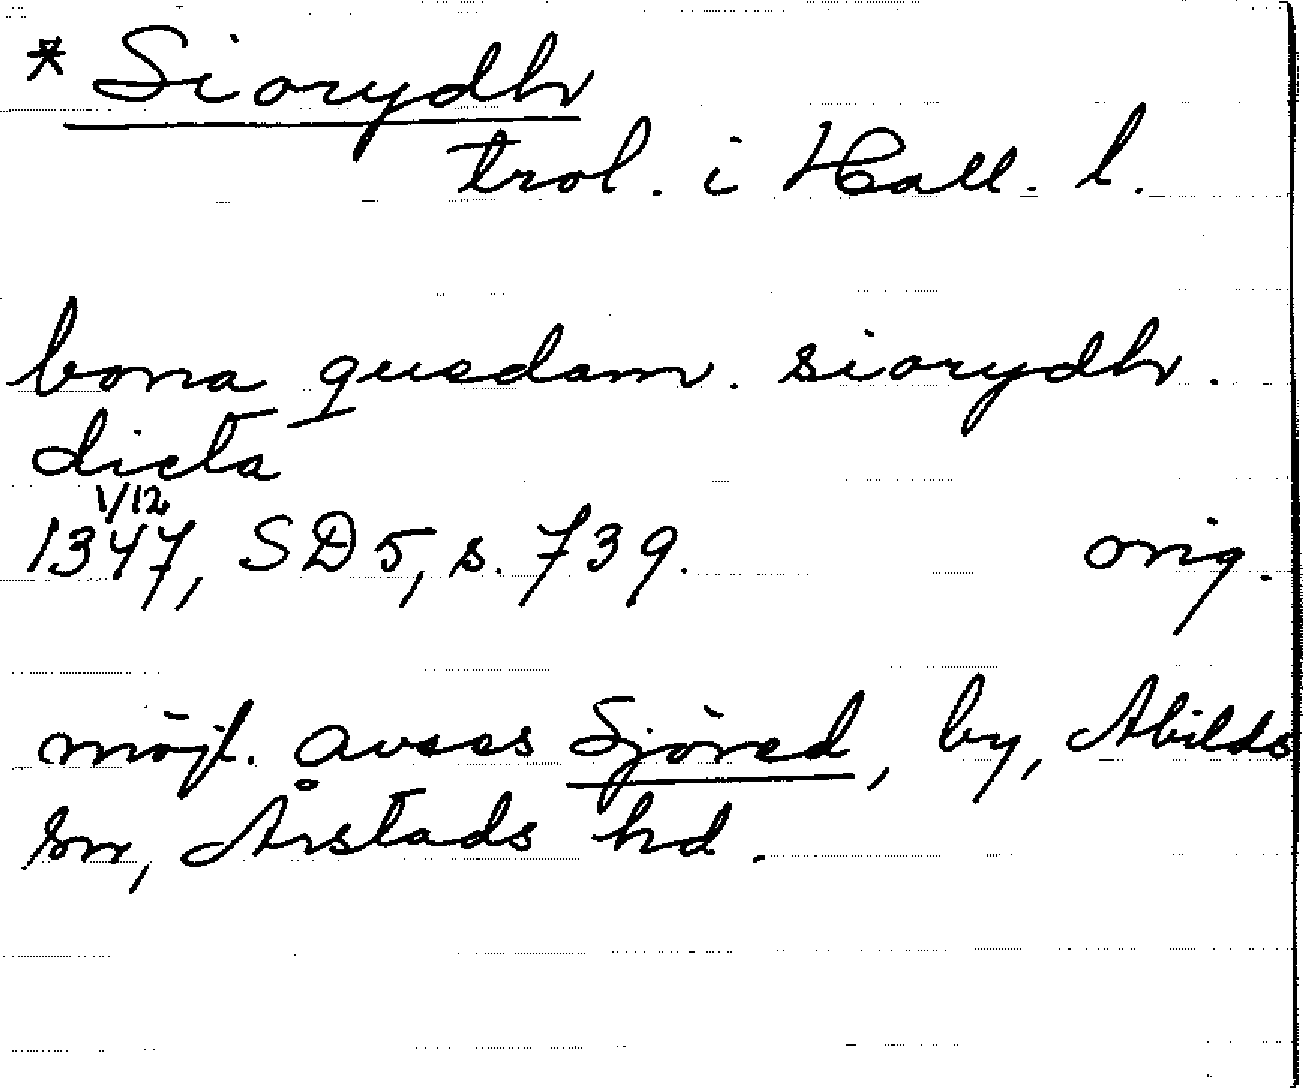 * Siorydh
trol. i Hall. l.
bona quedam. siorydh.
dicta
1/12
1347, SD 5, s. 739. orig.
möjl. avses Sjöred, by, Abilds
sn, Årstads hd.